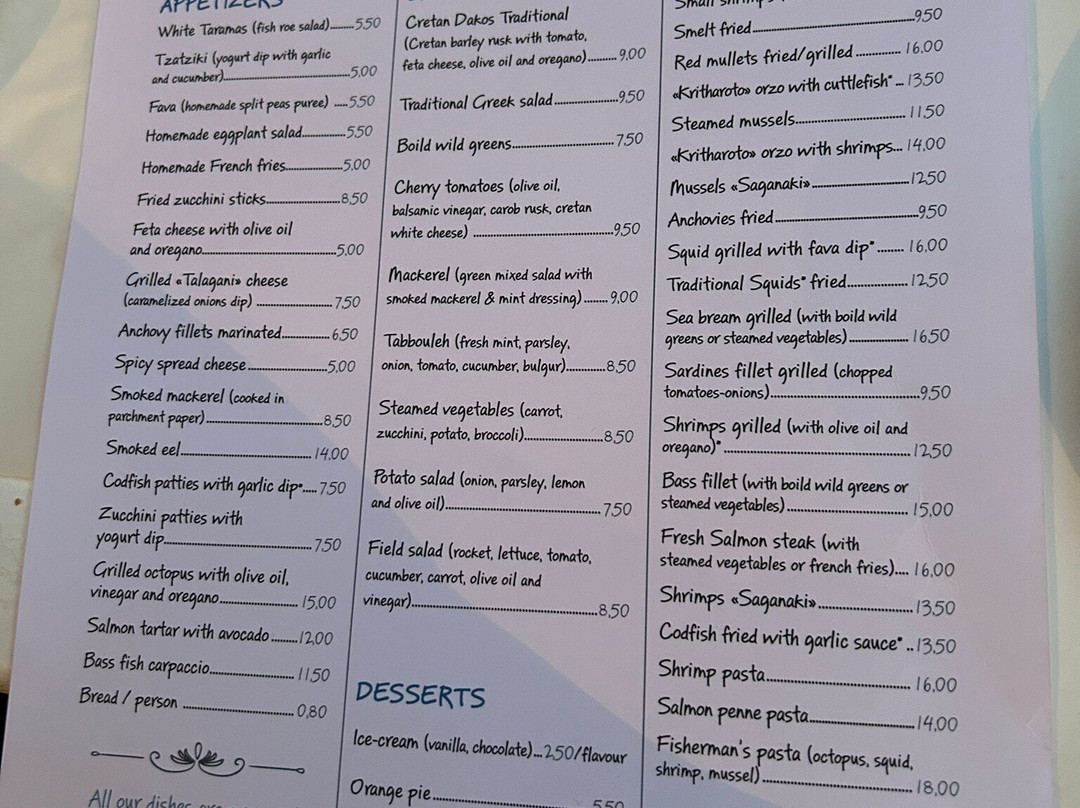 APPETIZERS
White Taramas (fish roe salad).........5,50
Tzatziki (yogurt dip with garlic
and cucumber)..........5,00
Fava (homemade split peas puree) .....5,50
Homemade eggplant salad..........5,50
Homemade French fries..........5,00
Fried zucchini sticks..........8,50
Feta cheese with olive oil
and oregano..........5,00
Grilled «Talagani» cheese
(caramelized onions dip) ..........7,50
Anchovy fillets marinated..........6,50
Spicy spread cheese..........5,00
Smoked mackerel (cooked in
parchment paper)..........8,50
Smoked eel..........14,00
Codfish patties with garlic dip*.....7,50
Zucchini patties with
yogurt dip..........7,50
Grilled octopus with olive oil,
vinegar and oregano..........15,00
Salmon tartar with avocado ........12,00
Bass fish carpaccio..........11,50
Bread / person ..........0,80
All our dishes are
Cretan Dakos Traditional
(Cretan barley rusk with tomato,
feta cheese, olive oil and oregano)..........9,00
Traditional Greek salad..........9,50
Boild wild greens..........7,50
Cherry tomatoes (olive oil,
balsamic vinegar, carob rusk, cretan
white cheese) ..........9,50
Mackerel (green mixed salad with
smoked mackerel & mint dressing)........9,00
Tabbouleh (fresh mint, parsley,
onion, tomato, cucumber, bulgur)..........8,50
Steamed vegetables (carrot,
zucchini, potato, broccoli)..........8,50
Potato salad (onion, parsley, lemon
and olive oil)..........7,50
Field salad (rocket, lettuce, tomato,
cucumber, carrot, olive oil and
vinegar)..........8,50
DESSERTS
Ice-cream (vanilla, chocolate)...2,50/flavour
Orange pie..........5,50
Small
Smelt fried..........9,50
Red mullets fried/grilled ..........16,00
«Kritharoto» orzo with cuttlefish* ...13,50
Steamed mussels..........11,50
«Kritharoto» orzo with shrimps... 14,00
Mussels «Saganaki»..........12,50
Anchovies fried..........9,50
Squid grilled with fava dip*....... 16,00
Traditional Squids* fried..........12,50
Sea bream grilled (with boild wild
greens or steamed vegetables)..........16,50
Sardines fillet grilled (chopped
tomatoes-onions)..........9,50
Shrimps grilled (with olive oil and
oregano)* ..........12,50
Bass fillet (with boild wild greens or
steamed vegetables)..........15,00
Fresh Salmon steak (with
steamed vegetables or french fries).... 16,00
Shrimps «Saganaki»..........13,50
Codfish fried with garlic sauce* ..13,50
Shrimp pasta..........16,00
Salmon penne pasta..........14,00
Fisherman's pasta (octopus, squid,
shrimp, mussel)..........18,00